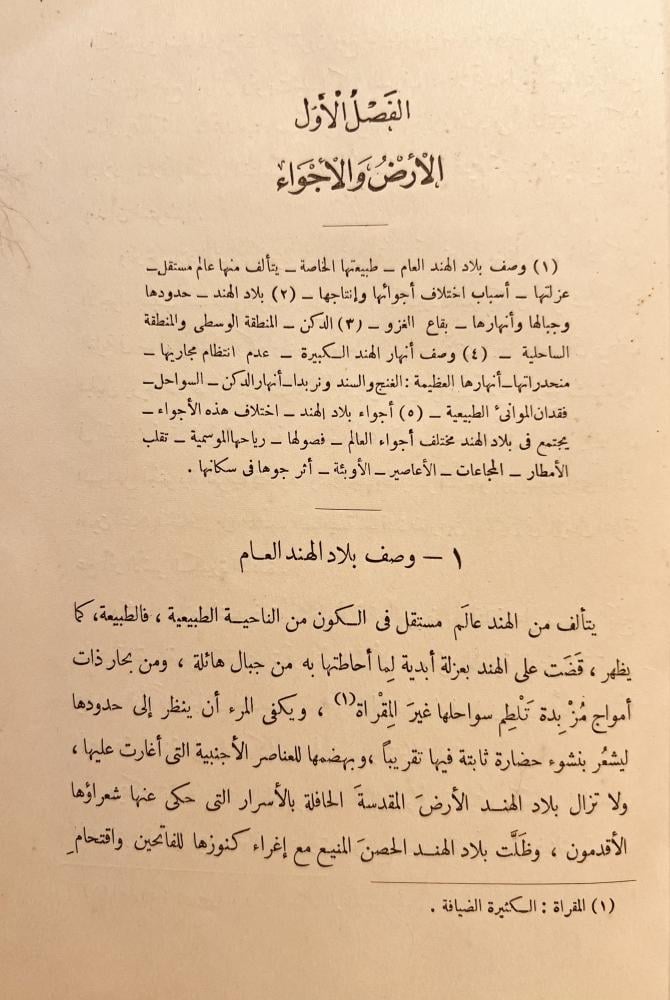 الفَصْلُ الْأَوّل
الْأَرْضُ وَالْأَجْوَاء
(١) وصف بلاد الهند العام ــ طبيعتها الخاصة ــ يتألف منها عالم مستقل ــ
عزلتها ــ أسباب اختلاف أجوائها وإنتاجها ــ (٢) بلاد الهند ــ حدودها
وجبالها وأنهارها ــ بقاع الغزو ــ (٣) الدكن ــ المنطقة الوسطى والمنطقة
الساحلية ــ (٤) وصف أنهار الهند الكبيرة ــ عدم انتظام مجاريها ــ
منحدراتها ــ أنهارها العظيمة : الغنج والسند ونربدا ــ أنهار الدكن ــ السواحل ــ
فقدان الموانئ الطبيعية ــ (٥) أجواء بلاد الهند ــ اختلاف هذه الأجواء ــ
يجتمع فى بلاد الهند مختلف أجواء العالم ــ فصولها ــ رياحها الموسمية ــ تقلب
الأمطار ــ المجاعات ــ الأعاصير ــ الأوبئة ــ أثر جوها فى سكانها .
١ ــ وصف بلاد الهند العام
يتألف من الهند عالَم مستقل فى الكون من الناحية الطبيعية ، فالطبيعة، كما
يظهر ، قَضَت على الهند بعزلة أبدية لِما أحاطتها به من جبال هائلة ، ومن بحار ذات
أمواج مُزْبِدة تَلْطِم سواحلها غيرَ المِقْراة(١) ، ويكفى المرء أن ينظر إلى حدودها
ليشعُر بنشوء حضارة ثابتة فيها تقريباً ، وبهضمها للعناصر الأجنبية التى أغارت عليها ،
ولا تزال بلاد الهند الأرضَ المقدسةَ الحافلة بالأسرار التى حكى عنها شعراؤها
الأقدمون ، وظَلَّت بلاد الهند الحصنَ المنيع مع إغراء كنوزها للفاتحين واقتحامِ
(١) المقراة : الكثيرة الضيافة .